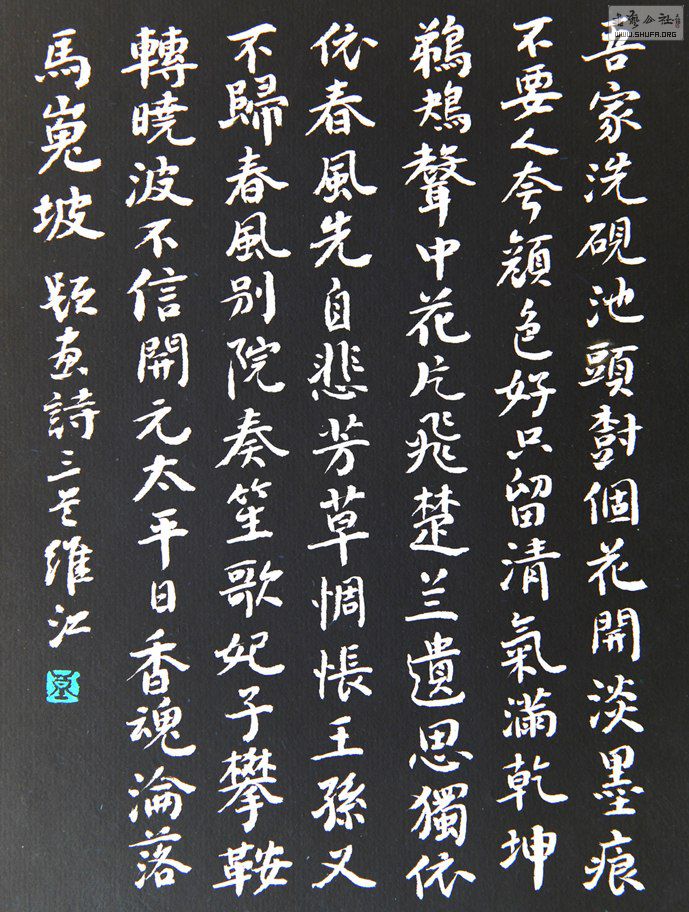 吾家洗硯池頭樹個花開淡墨痕
不要人夸顔色好只留清氣滿乾坤
鵜鴂聲中花片飛楚兰遺思獨依
依春風先自悲芳草惆悵王孫又
不歸春風别院奏笙歌妃子攀鞍
轉曉波不信開元太平日香魂淪落
馬嵬坡 題畫詩三首維江
書藝公社
WWW.SHUFA.ORG